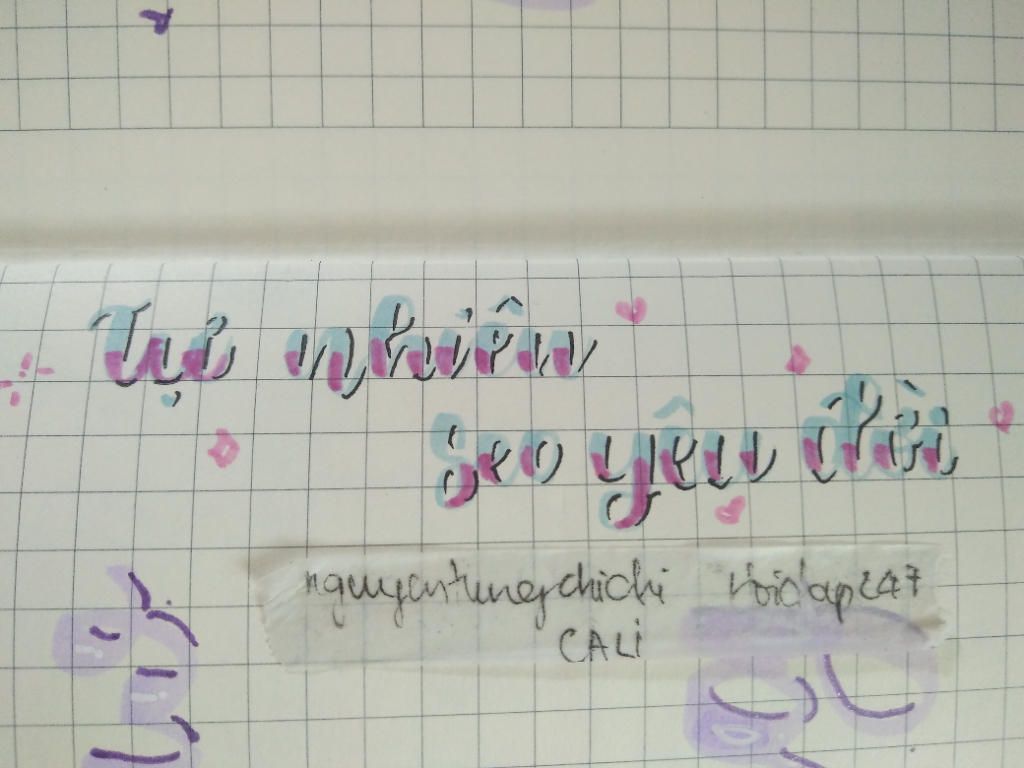 Tự nhiên
seo yêu đời
nguyentungchichi hoidap247
CALi